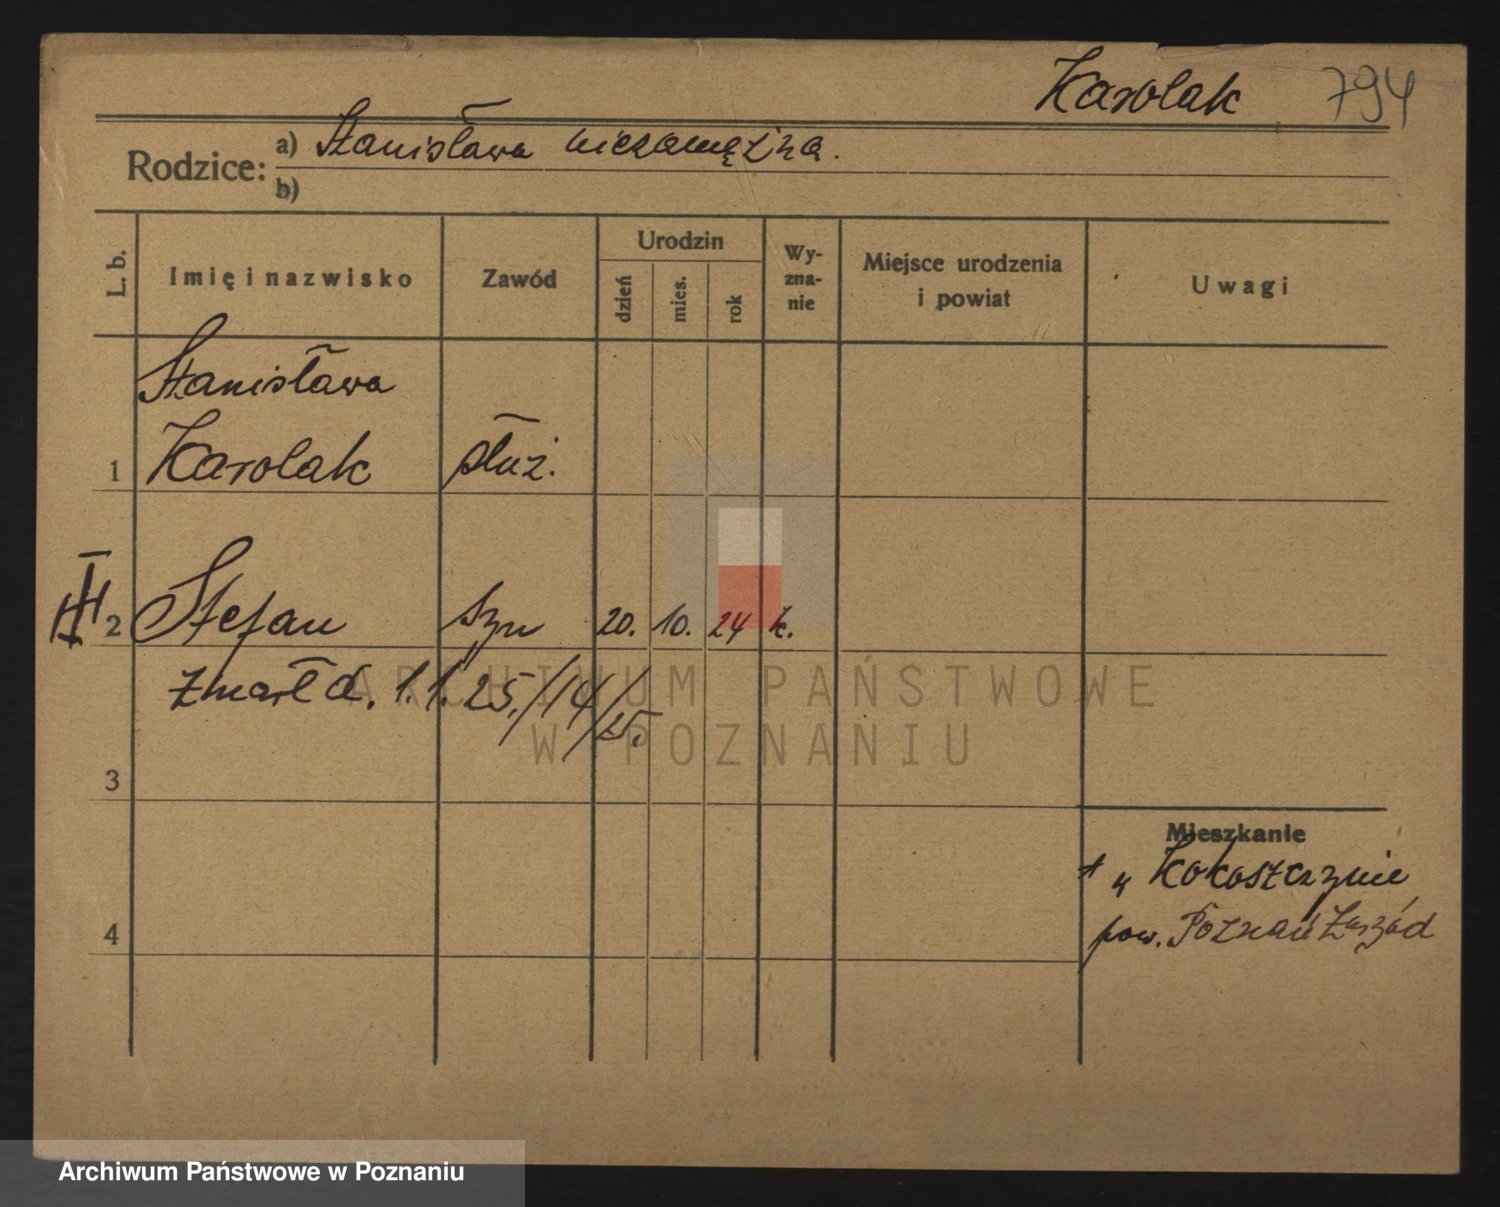 Karolak 794
Rodzice: a) Stanisława niezamężna.
b)
L. b. Imię i nazwisko Zawód Urodzin dzień mies. rok Wyzna-nie Miejsce urodzenia i powiat Uwagi
Stanisława
1 Karolak służ.
2 Stefan syn 20. 10. 24 k.
zmarł d. 1.1.25./14/25.
3
Mieszkanie
Kokoszczynie
4 pow. Poznań Zachód
ARCHIWUM PAŃSTWOWE
W POZNANIU
Archiwum Państwowe w Poznaniu